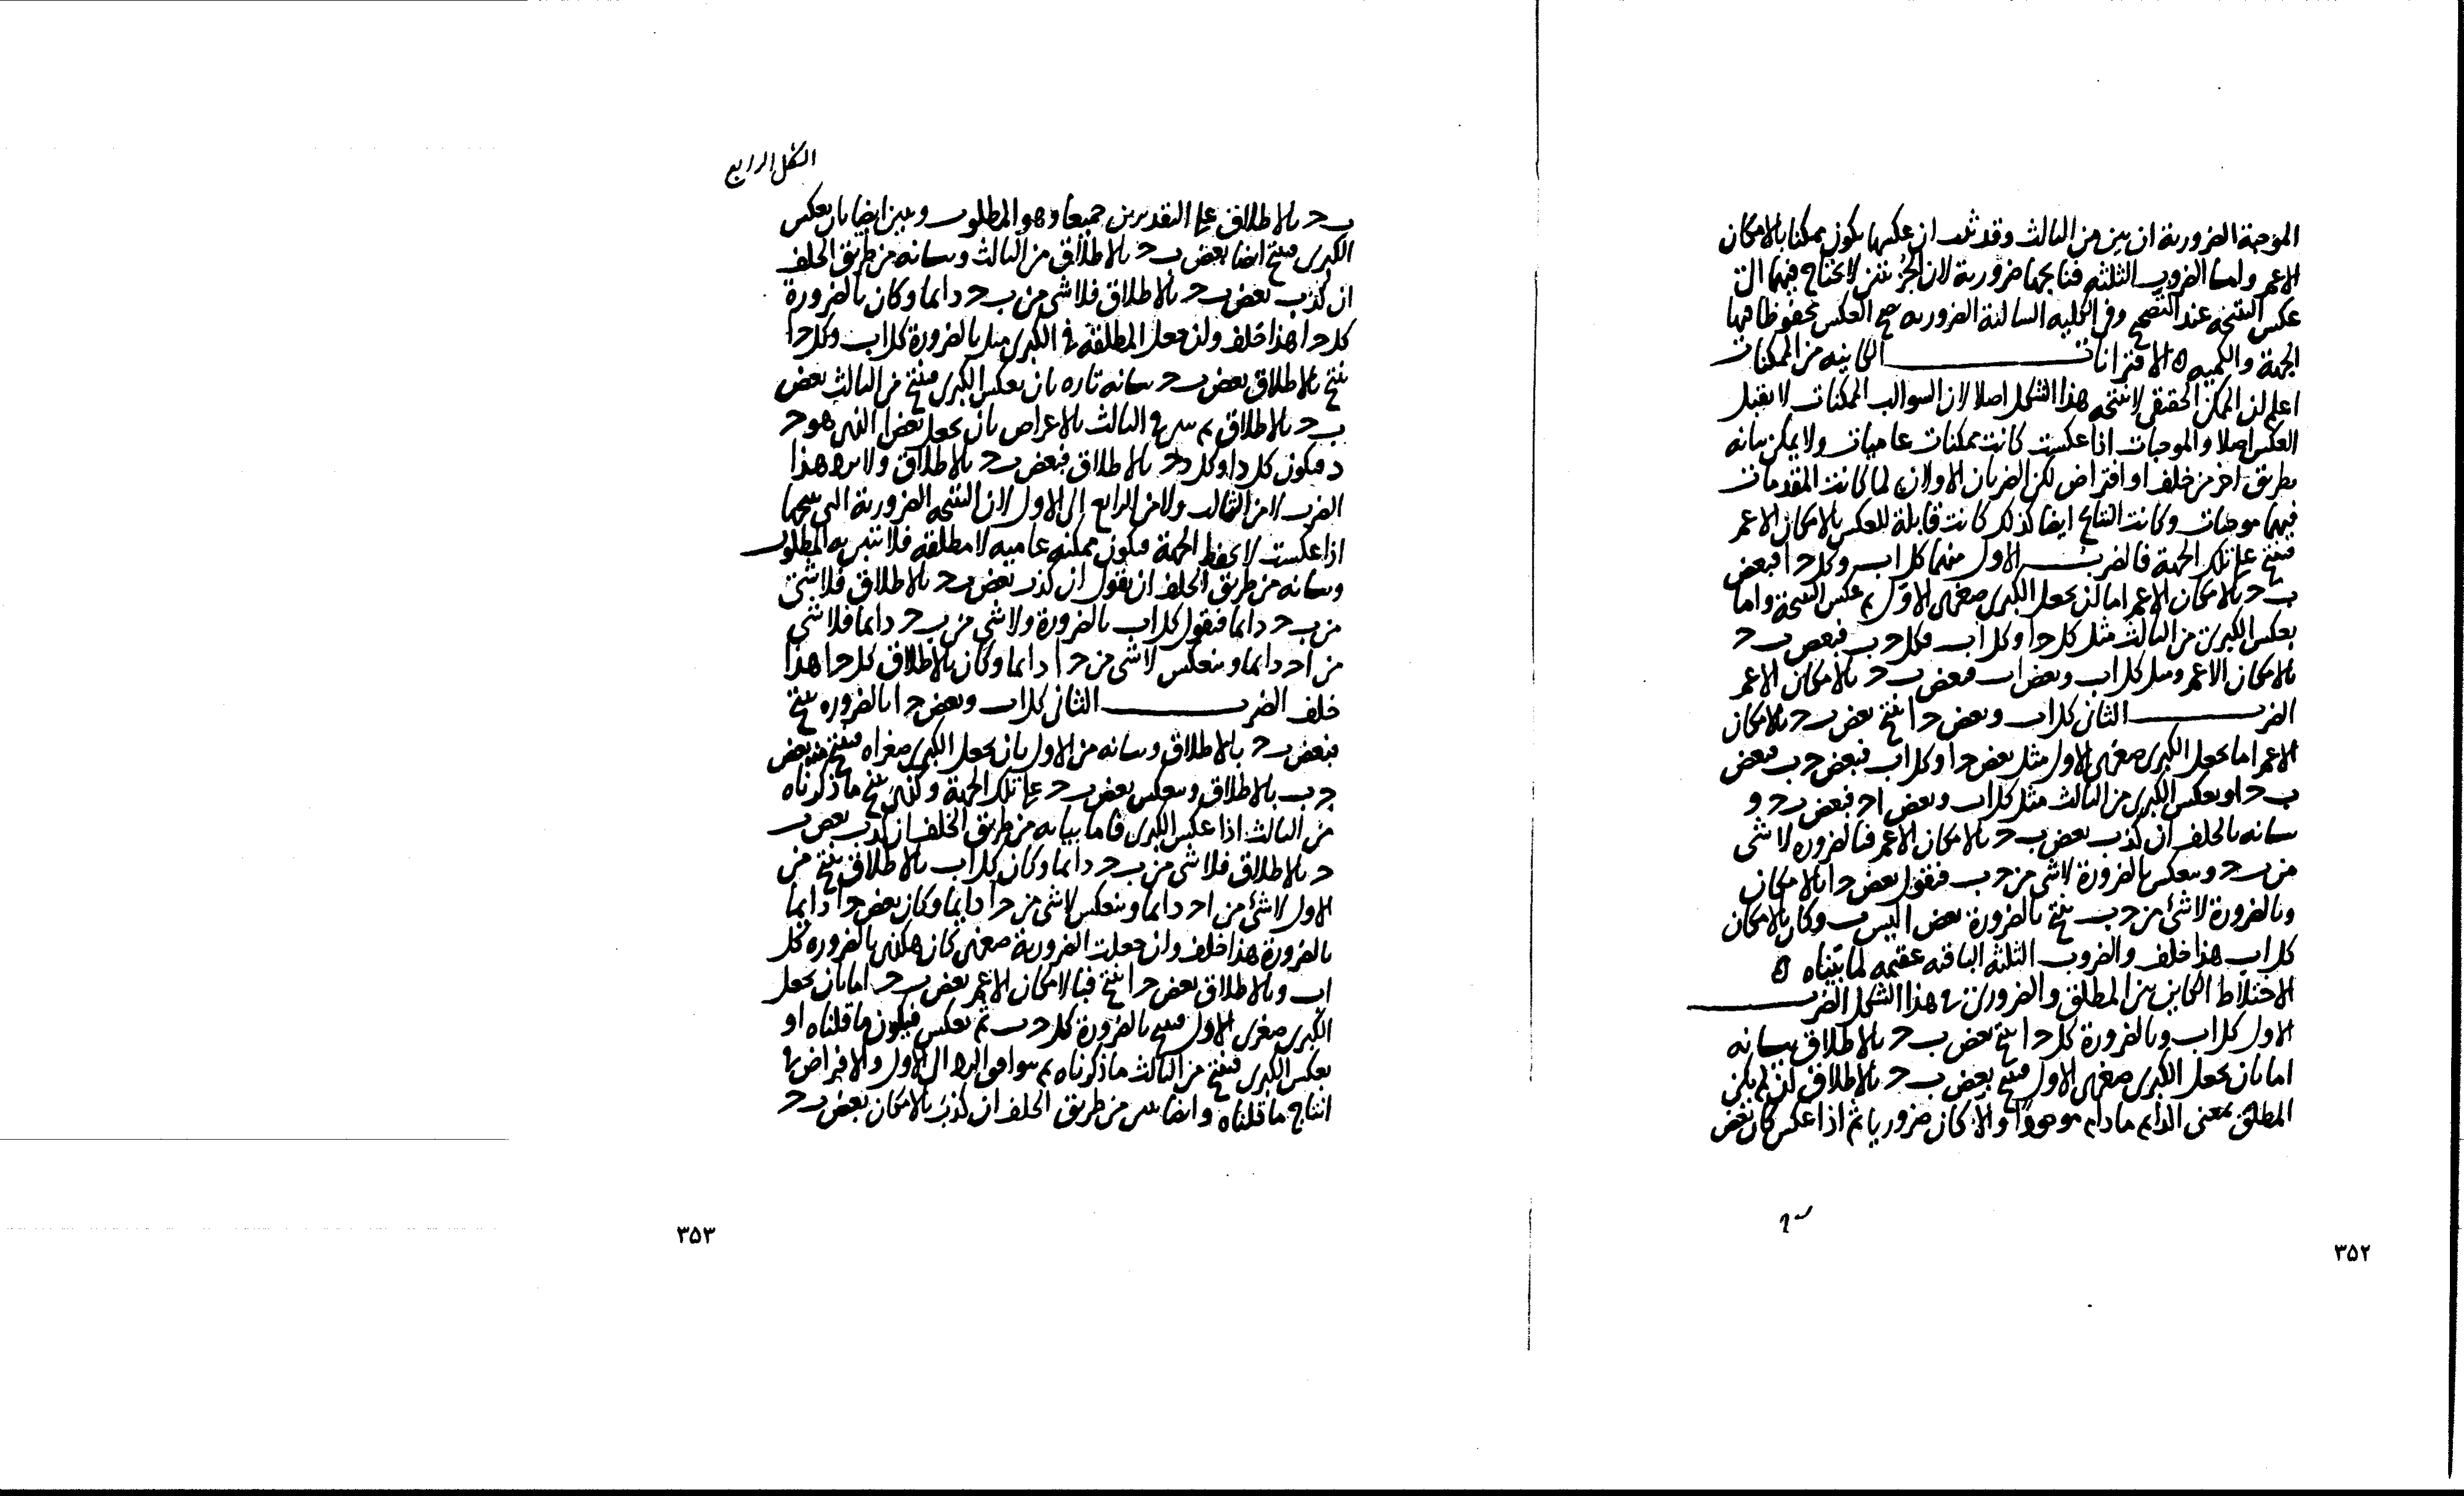 الموجبة الضرورية ان بين من الثالث وقد ثبت ان عكسها يكون ممكنا بالامكان
الاعم واما الضروب الثلثه فنتايجها ضرورية لان الجزئتين لا يحتاج فيهما الى
عكس النتيجه عند التصحيح وفي الكليه السالبة الضروريه صح العكس محفوظا فيها
الجهة والكميه ه الاقترانات الكاينه من الممكنات
اعلم ان الممكن الحقيقى لا ينتجه هذا الشكل اصلا لان السوالب الممكنات لا يقبل
العكس اصلا والموجبات اذا عكست كانت ممكنات عاميات ولا يمكن بيانه
بطريق اخر من خلف او افتراض لكن الضربان الاولان لما كانت المقدمات
فيهما موجبات وكانت النتايج ايضا كذلك كانت قابلة للعكس بالامكان الاعم
فينتج على تلك الجهة فالضرب الاول منهما كل اب وكل حا فبعض
ب ح بالامكان الاعم اما لان يجعل الكبرى صغرى الاول ثم عكس النتيجة واما
بعكس الكبرى من الثالث مثل كل حا وكل اب فكل ح ب فبعض ب ح
بالامكان الاعم ومثل كل اب وبعض اب فبعض ب ح بالامكان الاعم
الضرب الثانى كل اب وبعض حا ينتج بعض ب ح بالامكان
الاعم اما بجعل الكبرى صغرى الاول مثل بعض حا وكل اب فبعض ح ب فبعض
ب ح او بعكس الكبرى من الثالث مثل كل اب وبعض اح فبعض ب ح و
بيانه بالخلف ان كذب بعض ب ح بالامكان الاعم فبالضروره لا شى
من ب ح وينعكس بالضرورة لا شى من ح ب فنقول بعض حا بالامكان
وبالضرورة لا شئ من ح ب ينتج بالضرورة بعض ا ليس ب وكان بالامكان
كل اب هذا خلف والضروب الثلثة الباقيه عقيمه لما بيناه ه
الاختلاط الكاين من المطلق والضرورى فى هذا الشكل الضرب
الاول كل اب وبالضرورة كل حا ينتج بعض ب ح بالاطلاق بيانه
اما بان يجعل الكبرى صغرى الاول فينتج بعض ب ح بالاطلاق ان لم يكن
المطلق بمعنى الدايم مادام موجودا والا كان ضروريا ثم اذا عكس كان بعض
٣٥٢
الشكل الرابع
ب ح بالاطلاق على التقديرين جميعا وهو المطلوب وبين ايضا بان يعكس
الكبرى فينتج ايضا بعض ب ح بالاطلاق من الثالث وبيانه من طريق الخلف
ان كذب بعض ب ح بالاطلاق فلا شى من ب ح دايما وكان بالضرورة
كل حا هذا خلف وان جعل المطلقة فى الكبرى مثل بالضرورة كل اب وكل حا
ينتج بالاطلاق بعض ب ح بيانه تاره بان يعكس الكبرى فينتج من الثالث بعض
ب ح بالاطلاق ثم فى الثالث بالافتراض بان يجعل بعض ا الذى هو ح
د فيكون كل دا وكل دح بالاطلاق فبعض ب ح بالاطلاق ولا هذا
الضرب لا من الثالث ولا من الرابع الى الاول لان النتيجه الضرورية التى ينتجها
اذا عكست لا يحفظ الجهة فيكون ممكنه عاميه لا مطلقة فلا تبين به المطلوب
وبيانه من طريق الخلف ان نقول ان كذب بعض ب ح بالاطلاق فلا شئ
من ب ح دايما فنقول كل اب بالضرورة ولا شى من ب ح دايما فلا شى
من اح دايما وينعكس لا شى من حا دايما وكان بالاطلاق كل حا هذا
خلف الضرب الثانى كل اب وبعض حا بالضروره ينتج
فبعض ب ح بالاطلاق وبيانه من الاول بان يجعل الكبرى صغراه فينتج منه بعض
ح ب بالاطلاق وينعكس بعض ب ح على تلك الجهة وكذى ينتج ما ذكرناه
من الثالث اذا عكس الكبرى فاما بيانه من طريق الخلف ان كذب بعض ب
ح بالاطلاق فلا شى من ب ح دايما وكان كل اب بالاطلاق ينتج من
الاول لا شئ من اح دايما وينعكس لا شى من حا دايما وكان بعض حا دايما
بالضرورة هذا خلف وان جعلت الضرورية صغرى كان هكذى بالضروره كل
اب وبالاطلاق بعض حا ينتج فبالامكان الاعم بعض ب ح اما بان يجعل
الكبرى صغرى الاول فينتج بالضرورة كل ح ب ثم يعكس فيكون ما قلناه او
بعكس الكبرى فينتج من الثالث ما ذكرناه ثم الى الاول والافتراض فى
انتاج ما قلناه وايضا من طريق الخلف ان كذب بالامكان بعض ب ح
٣٥٣